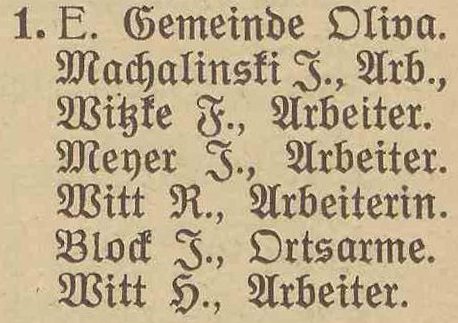 1. E. Gemeinde Oliva.
Machalinski J., Arb.,
Witzke F., Arbeiter.
Meyer J., Arbeiter.
Witt R., Arbeiterin.
Block J., Ortsarme.
Witt H., Arbeiter.